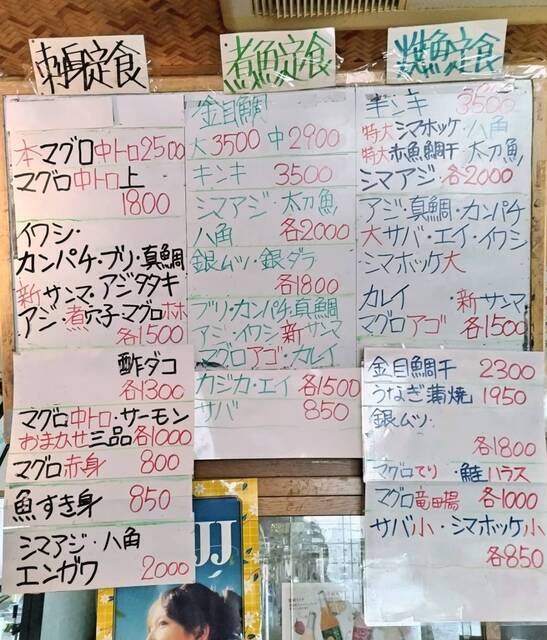 刺身定食
本マグロ中トロ2500
マグロ中トロ上
1800
イワシ・
カンパチ・ブリ・真鯛
新サンマ・アジタタキ
アジ・煮穴子・マグロホホ
各1500
酢ダコ
各1300
マグロ中トロ・サーモン
おまかせ三品各1000
マグロ赤身 800
魚すき身 850
シマアジ・八角
エンガワ 2000
煮魚定食
金目鯛
大3500 中2900
キンキ 3500
シマアジ・太刀魚
八角 各2000
銀ムツ・銀ダラ
各1800
ブリ・カンパチ・真鯛
アジ・イワシ 新サンマ
マグロアゴ・カレイ
カジカ・エイ 各1500
サバ 850
焼魚定食
キンキ 3500
特大シマホッケ・八角
特大赤魚鯛干 太刀魚
シマアジ・各2000
アジ・真鯛・カンパチ
大サバ・エイ・イワシ
シマホッケ大
カレイ ・新サンマ
マグロアゴ 各1500
金目鯛干 2300
うなぎ蒲焼 1950
銀ムツ・
各1800
マグロてり ・鮭ハラス
マグロ竜田揚 各1000
サバ小・シマホッケ小
各850
JJ